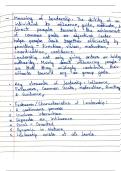 - Meaning of Leadership: The ability of an
individual to influence, guide, motivate, &
direct people toward the achievement
of common goals or objective. Leader
helps people work together effectively by
providing - direction, vision, motivation,
coordination, confidence.
Leadership not only giving orders or holding
authority. Mainly about influencing people
so that they willingly contribute their
efforts toward org. / group goals.
- Key elements of Leadership : Influence,
Followers, Common Goals, Motivation, Guiding
& Guidance.
- Features/Characteristics of Leadership :
1. Influence process
2. Involves interaction
3. Depends on Influence
4. Goal - Oriented
5. Dynamic in Nature
6. Leaders exist at all levels